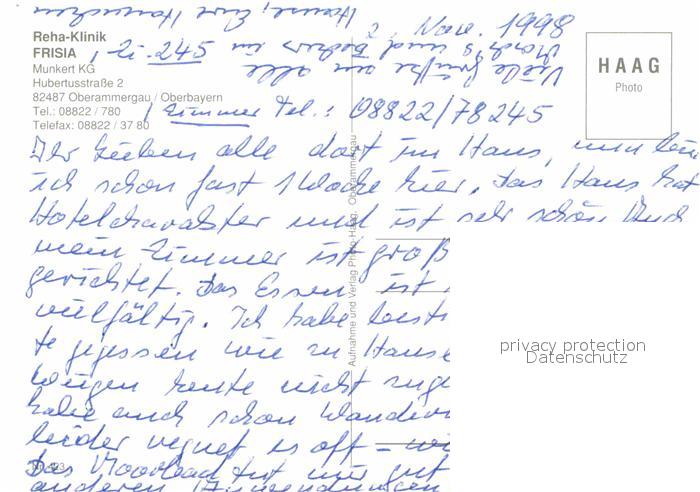 Reha-Klinik
FRISIA
Munkert KG
Hubertusstraße 2
82487 Oberammergau / Oberbayern
Tel.: 08822 / 780
Telefax: 08822 / 37 80
Zi. 245
2. Nov. 1998
Viele Grüße an alle
und in
Hause, Eure
HAAG
Photo
Zimmer Tel.: 08822/78245
Ihr Lieben alle dort im Haus, nun bin
ich schon fast 1 Woche hier. Das Haus hat
Hotelcharakter und ist sehr schön. Auch
mein Zimmer ist groß
gerichtet. Das Essen ist
vielfältig. Ich habe
te gegessen wie zu Hause
wegen heute nicht
habe auch schon
leider regnet es oft - wi
Das Moorbad tut mir gut
anderen Anwendungen
Aufnahme und Verlag Photo-Haag, Oberammergau
privacy protection
Datenschutz